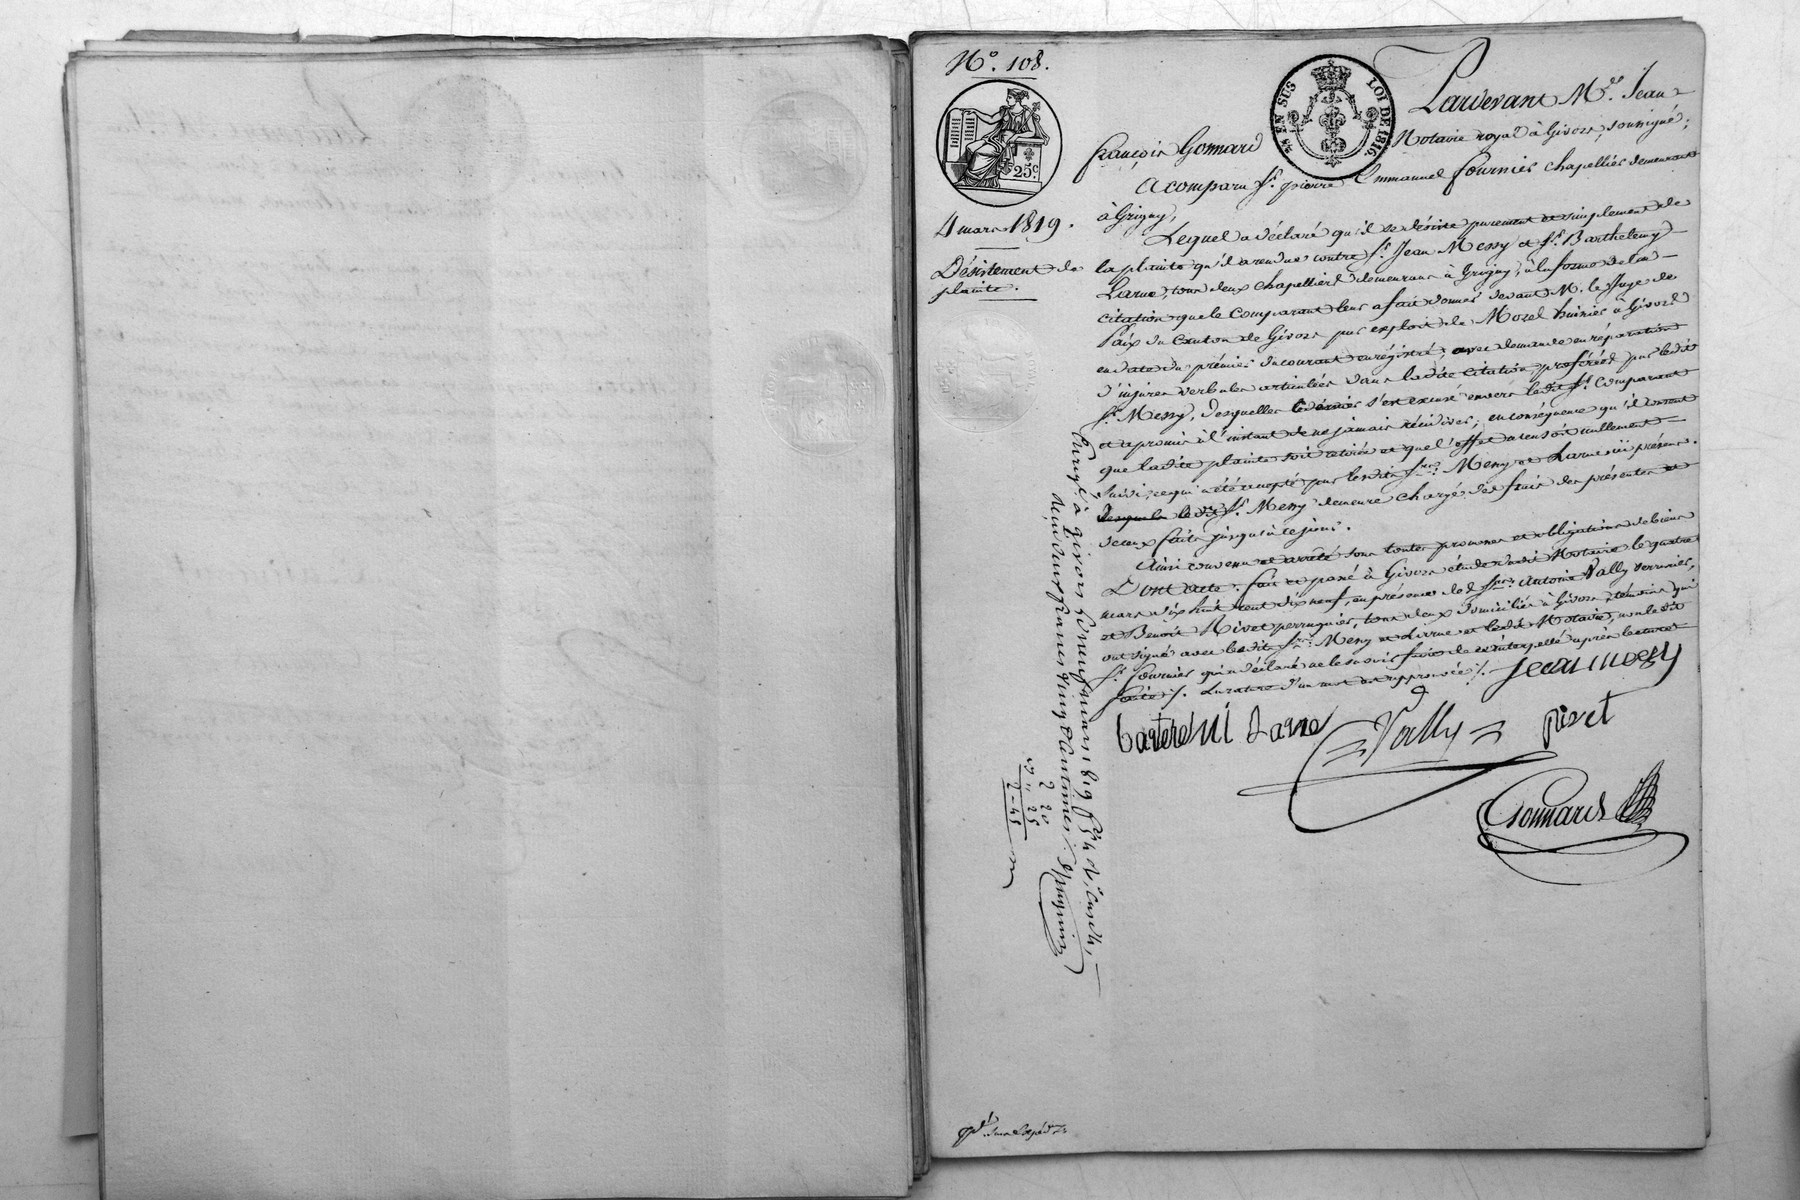 N° 108.
25c
EN SUS
LOI DE 1816.
4 mars 1819.
Désistement de
plainte.
Pardevant Me. Jean
françois Gonnard Notaire royal à Givors, soussigné;
A comparu Sr. pierre Emmanuel fournier chapellier demeurant
à Grigny,
Lequel a déclaré qu'il se désiste purement et simplement de
la plainte qu'il a rendue contre Sr. Jean Messy et Sr. Barthelemy
Larue, tous deux chapelliers demeurans à Grigny, à la forme de la
citation que le Comparant leur a fait donner devant M. le Juge de
Paix du Canton de Givors par exploit de Morel huissier à Givors
en date du premier du courant enrégistré, avec demande en réparation
d'injures verbales articulées dans ladite citation proférées par ledit
Sr. Messy, desquelles ce dernier s'est excusé envers ledit Sr. Comparant
et a promis à l'instant de ne jamais récidiver; en conséquence qu'il consent
que ladite plainte soit retirée et que l'effet en soit nullement
suivi, ce qui a été accepté par lesdits Srs. Messy et Larue ici présens.
ledit Sr. Messy demeure chargé des frais des présentes et
de ceux faits jusqu'à ce jour.
Ainsi convenu et arrêté sous toutes promesses et obligations de biens
Dont acte: fait et passé à Givors étude dudit Notaire le quatre
mars dix huit cent dix neuf, en présence de Srs. Antoine Vally serrurier,
et Benoit Rivet perruquier, tous deux domiciliés à Givors, témoins qui
ont signé avec lesdits Srs. Messy et Larue et ledit Notaire, non ledit
Sr. fournier qui a déclaré ne le savoir faire de ce interpellé après lecture
faite ./. La rature d'un mot est approuvée ./.
Jean messy
Larue
Vally
Rivet
Gonnard
Enregé. à givors le neuf mars 1819
deux francs vingt centimes
2 20
25
2-45